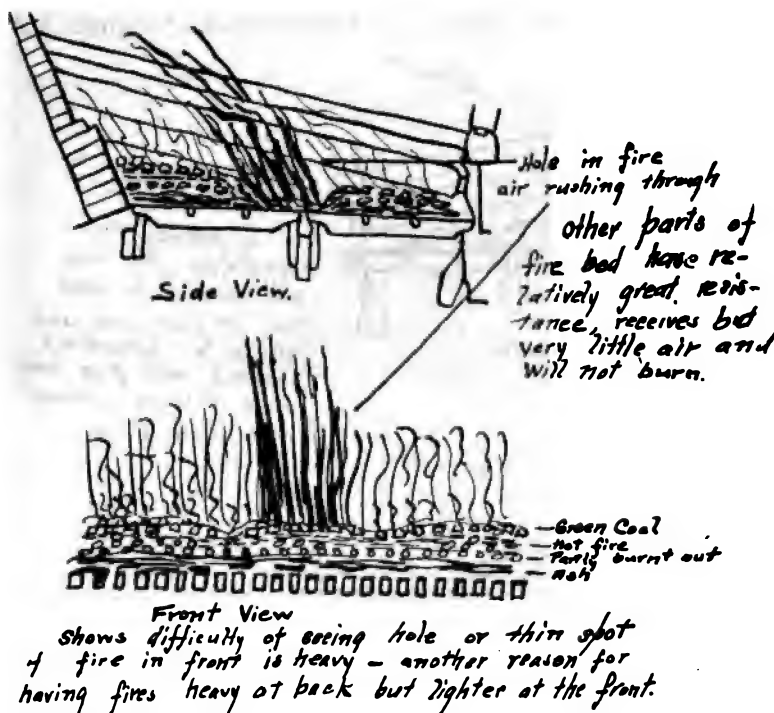 Hole in fire
air rushing through
other parts of
fire bed have re-
latively great resis-
tance, receives but
very little air and
will not burn.
Side View.
Green Coal
Hot fire
Partly burnt out
Ash
Front View
Shows difficulty of seeing hole or thin spot
if fire in front is heavy — another reason for
having fires heavy at back but lighter at the front.